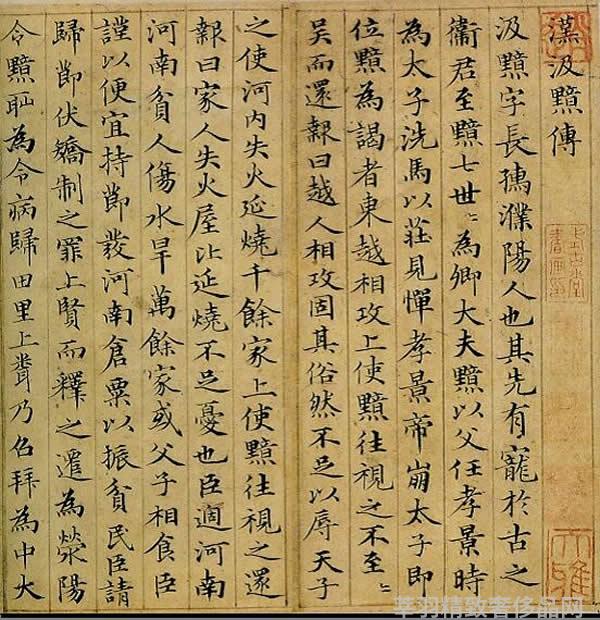 漢汲黯傳
汲黯字長孺濮陽人也其先有寵於古之
衞君至黯七世〻為卿大夫黯以父任孝景時
為太子洗馬以莊見憚孝景帝崩太子即
位黯為謁者東越相攻上使黯往視之不至〻
吳而還報曰越人相攻固其俗然不足以辱天子
之使河內失火延燒千餘家上使黯往視之還
報曰家人失火屋比延燒不足憂也臣適河南
河南貧人傷水旱萬餘家或父子相食臣
謹以便宜持節發河南倉粟以振貧民臣請
歸節伏矯制之罪上賢而釋之遷為滎陽
令黯耻為令病歸田里上聞乃召拜為中大
大雅
羽精致奢侈品网